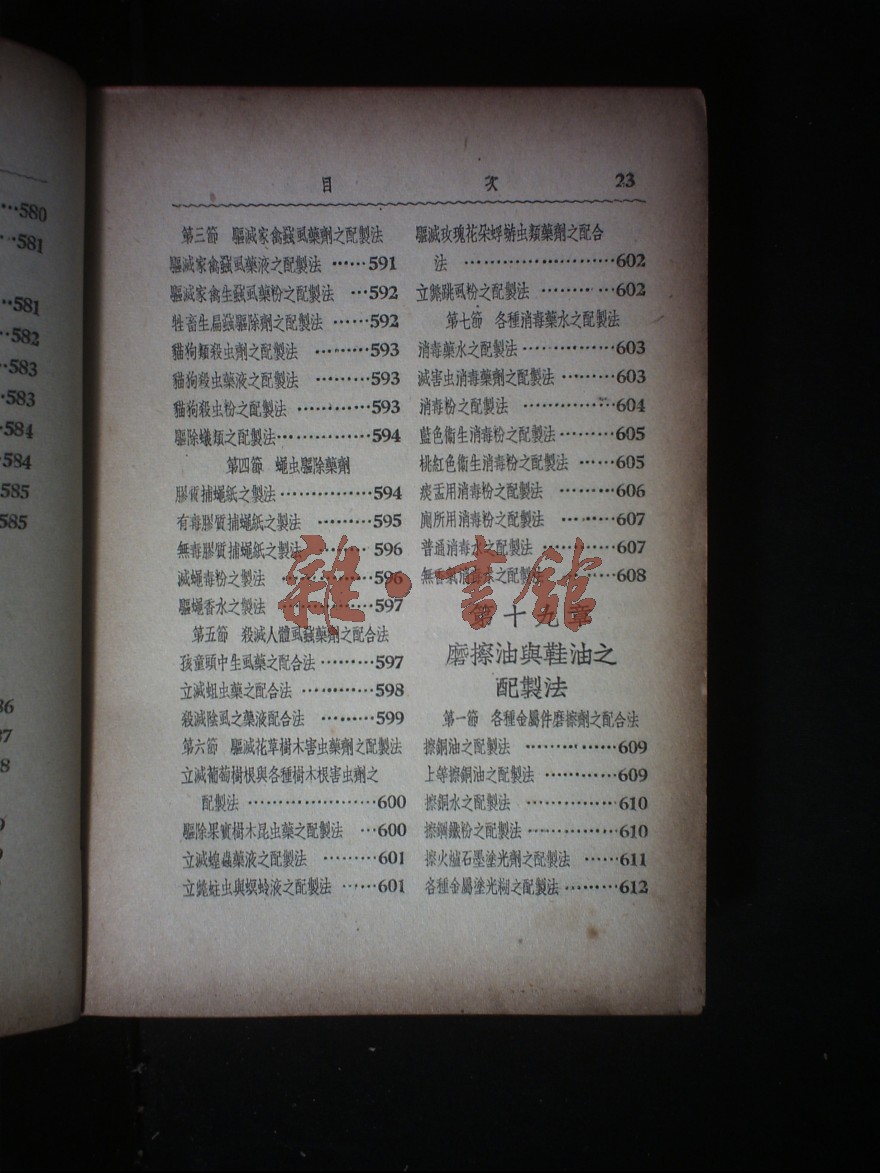 580
581
581
582
583
583
584
584
585
585
86
87
8
9
9
目 次 23
第三節 驅滅家禽蝨虱藥劑之配製法
驅滅家禽蝨虱藥液之配製法 ……591
驅滅家禽生蝨虱藥粉之配製法 …592
牲畜生扁蝨驅除劑之配製法 ……592
貓狗類殺虫劑之配製法 ………593
貓狗殺虫藥液之配製法 ………593
貓狗殺虫粉之配製法 …………593
驅除蟻類之配製法……………594
第四節 蠅虫驅除藥劑
膠質捕蠅紙之製法……………594
有毒膠質捕蠅紙之製法 ………595
無毒膠質捕蠅紙之製法 ………596
滅蠅毒粉之製法 …………596
驅蠅香水之製法 …………597
第五節 殺滅人體虱蝨藥劑之配合法
孩童頭中生虱藥之配合法………597
立滅蛆虫藥之配合法 …………598
殺滅陰虱之藥液配合法 ………599
第六節 驅滅花草樹木害虫藥劑之配製法
立滅葡萄樹根與各種樹木根害虫劑之
配製法 …………………600
驅除果實樹木昆虫藥之配製法 …600
立滅蝗蟲藥液之配製法 …………601
立斃蛀虫與螟蛉液之配製法 ……601
驅滅玫瑰花朵蜉蝣虫類藥劑之配合
法 ……………………602
立斃跳虱粉之配製法 …………602
第七節 各種消毒藥水之配製法
消毒藥水之配製法………………603
滅害虫消毒藥劑之配製法 ………603
消毒粉之配製法 ……………604
藍色衞生消毒粉之配製法………605
桃紅色衞生消毒粉之配製法 ……605
痰盂用消毒粉之配製法 ………606
廁所用消毒粉之配製法 ………607
普通消毒水之配製法 …………607
無香氣消毒水之配製法 ………608
第十九章
磨擦油與鞋油之
配製法
第一節 各種金屬件磨擦劑之配合法
擦銅油之配製法 ……………609
上等擦銅油之配製法 …………609
擦銅水之配製法 ……………610
擦鋼鐵粉之配製法……………610
擦火爐石墨塗光劑之配製法 ……611
各種金屬塗光糊之配製法………612
雜·書館